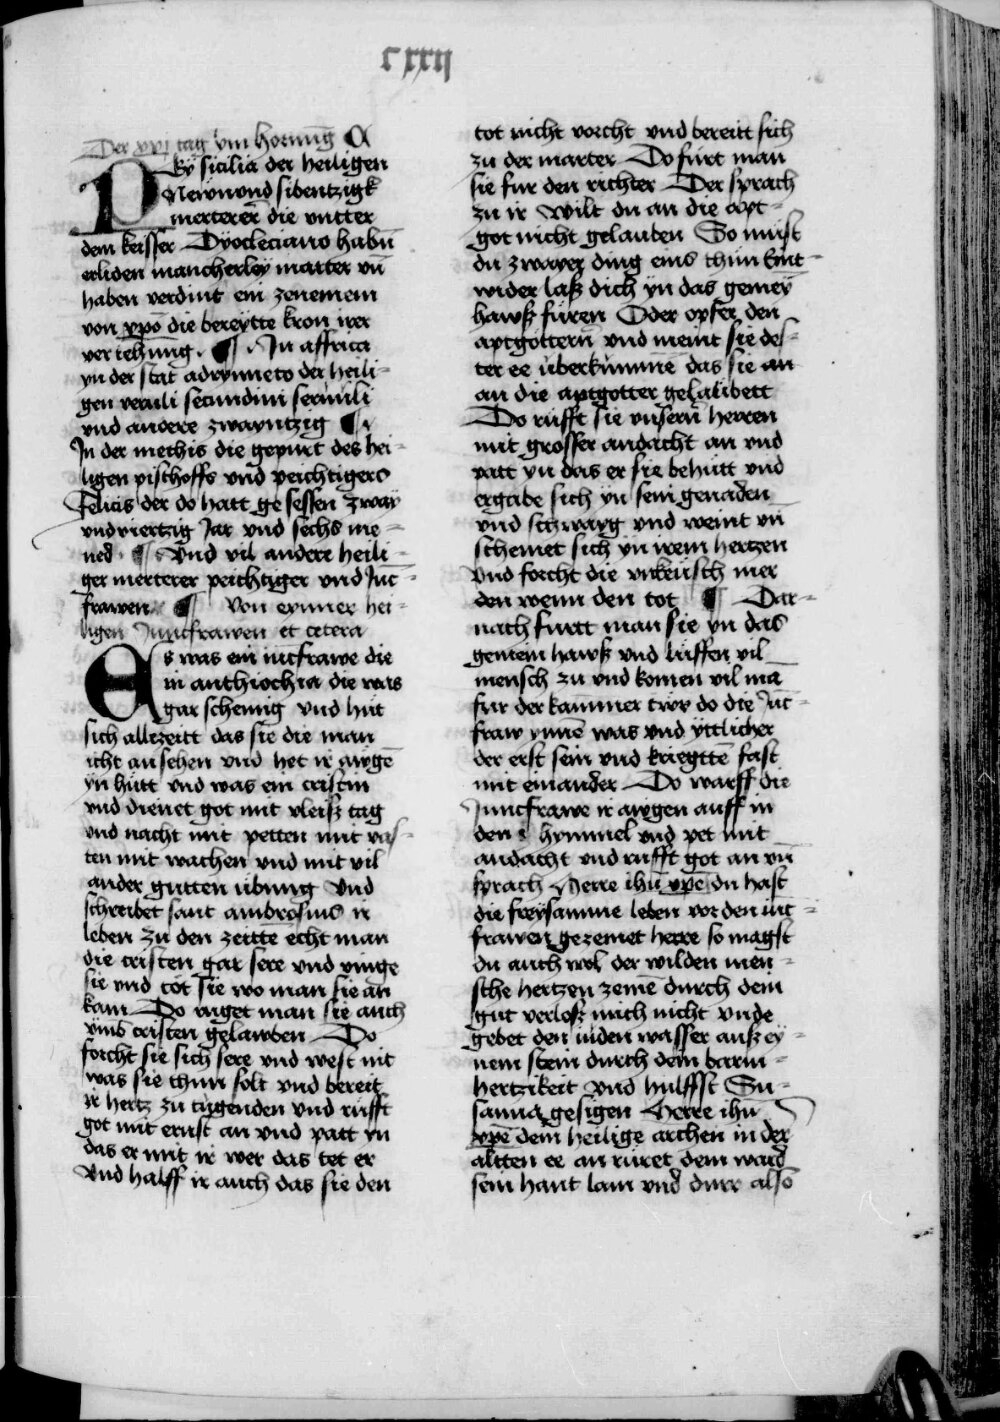 cxxij
Der xxj tag ym hornung A
Py sicilia der heiligen
Newnvnd sibentzigk
merterer die vntter
dem keisser Dyocleciano habn̄
erliden mancherley marter vn̄
haben verdint ein zenemem
von xp̄o die bereytte kron irer
veriehung . ¶ . In affrica
yn der stat adrymneto der heili-
gen veruli secundini seruuli
vnd andere zwayntzig ¶ .
In der methis die gepurt des hei-
ligen pischoffs vnd peichtigers
Felicis der do hatt gesessen zway
vnd viertzig Jar vnd sechs me-
ned . ¶ . Vnd vil andere heili-
ger merterer peichtiger vnd Jūc-
frawen ¶ Von eynner hei-
ligen Junckfrawen et cetera
Es was ein iūcfrawe die
in anthiochia die was
gar schemig vnd hüt
sich alltzeitt das sie die man
icht ansehen vnd het ir awgē
yn hütt vnd was ein cristin
vnd dienet got mit vleiß tag
vnd nacht mit petten mit vas-
ten mit wachen vnd mit vil
ander gutten übung Vnd
schreibet sant ambrosius ir
leben zu den zeittē echt man
die cristen gar sere vnd vinge
sie vnd tót sie wo man sie an
kam Do ruget man sie auch
vms cristen gelawben Do
forcht sie sich sere vnd west nit
was sie thun solt vnd bereit
ir hertz zu tugenden vnd rüfft
got mit ernst an vnd patt yn
das er mit ir wer das tet er
vnd halff ir auch das sie den
tot nicht vorcht vnd bereitt sich
zu der marter Do furt man
sie fur den richter Der sprach
zu ir Wilt du an die apt-
got nicht gelauben So must
du zwayer ding eins thun Ent-
wider laß dich yn das gemey
hawß füren Oder opfer den
aptgottern vnd meint sie des-
ter ee überkummē das sie an
an die aptgotter gelaubett
Do rüfft sie vnsern herren
mit grosser andacht an vnd
patt yn das er sie behütt vnd
ergabe sich yn sein genaden
vnd schwayg vnd weint vn̄
schemet sich yn irem hertzen
vnd forcht die vnkeusch mer
den wenn den tot ¶ Dar-
nach furtt man sie yn das
gemein hawß vnd lüffen vil
mensch zu vnd komen vil mā
für der kammer twr do die Jūc-
fraw ynnē was vnd yttlicher
der erst sein vnd kriegttē fast
mit einander Do warff die
Junckfrawe ir awgen auff in
den hymmel vnd pet mit
andacht vnd rufft got an vn̄
sprach Herre ihū xp̄e du hast
die freysamme leben vor den iūc-
frawen gezemet herre so magst
du auch wol der wilden men-
sche hertzen zeme durch dein
gut verloß mich nicht vnde
gebet den iuden wasser auß ey-
nem stein durch dein barm-
hertzikeit Vnd hulffst Su-
sanna gesigen Herre ihū
xp̄e dem heilige archen in der
altten ee an rüret dem ward
sein hant lam vnd durr also